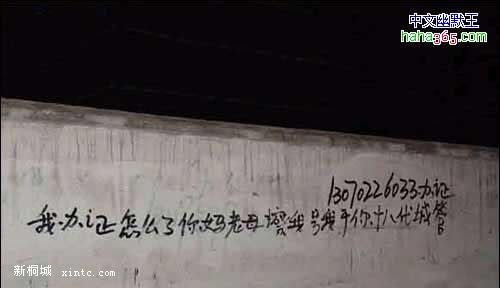 中文幽默王
haha365.com
13070226033办证
我办证怎么了你妈老母擦我号我干你十八代城管
新桐城 xintc.com